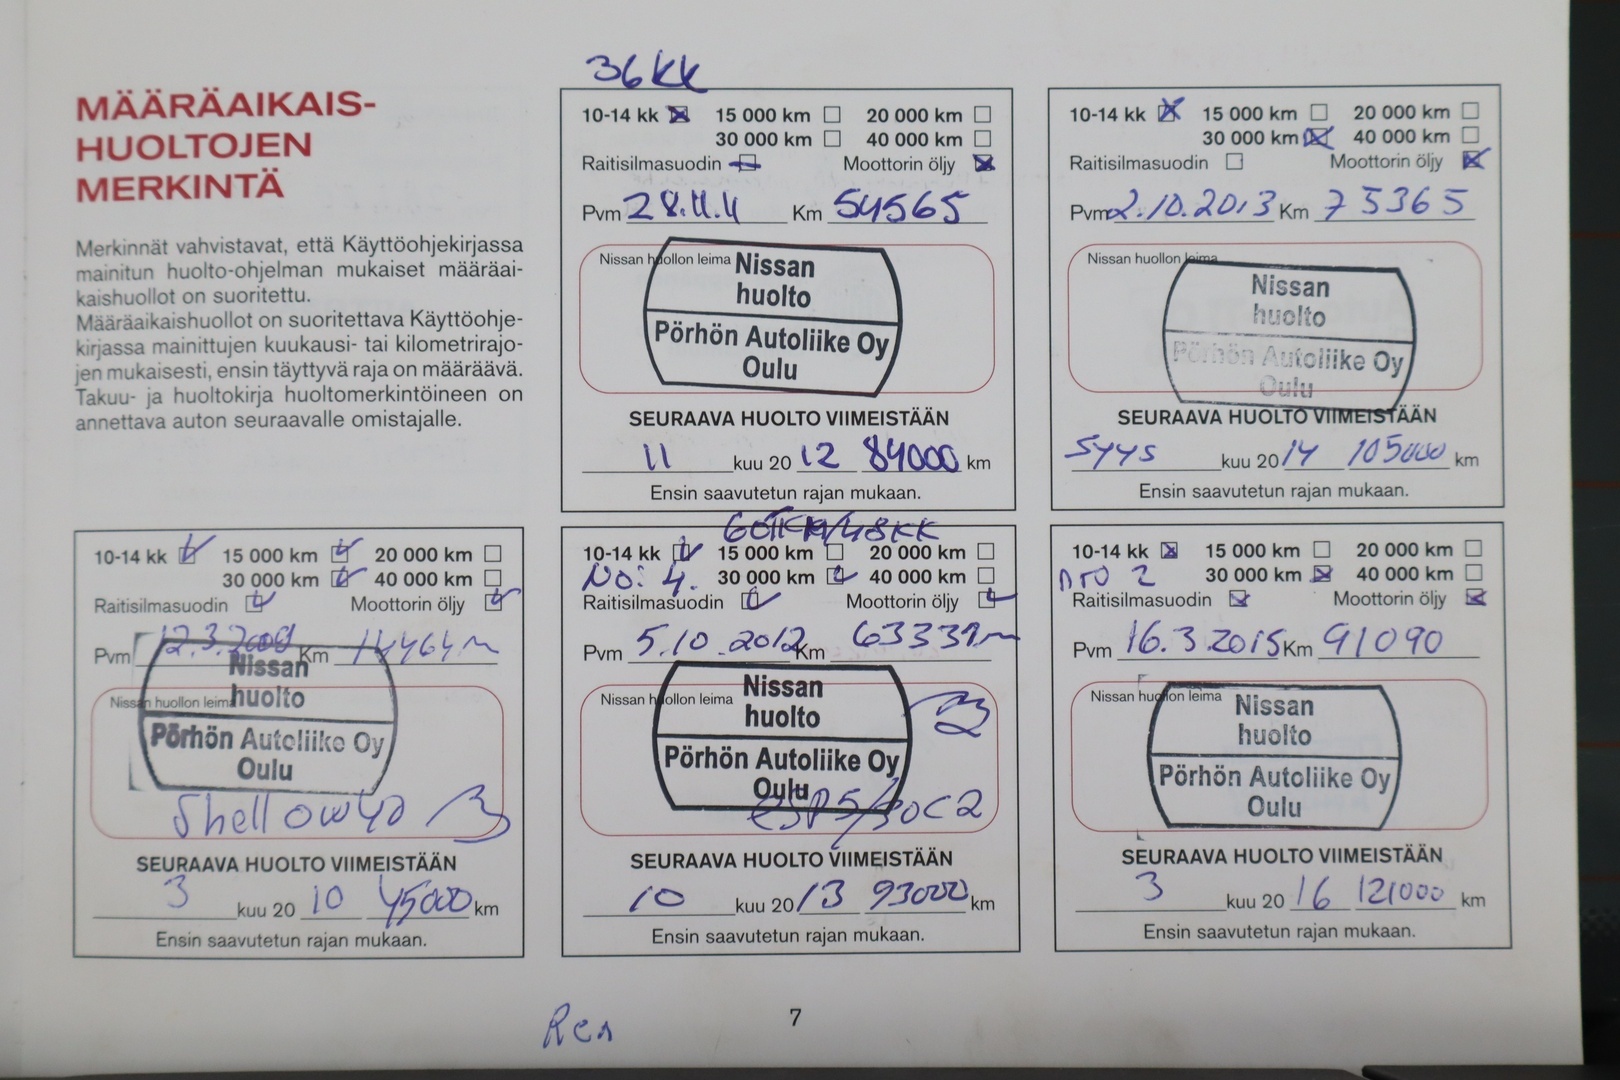 MÄÄRÄAIKAIS-
HUOLTOJEN
MERKINTÄ
Merkinnät vahvistavat, että Käyttöohjekirjassa
mainitun huolto-ohjelman mukaiset määräai-
kaishuollot on suoritettu.
Määräaikaishuollot on suoritettava Käyttöohje-
kirjassa mainittujen kuukausi- tai kilometrirajo-
jen mukaisesti, ensin täyttyvä raja on määräävä.
Takuu- ja huoltokirja huoltomerkintöineen on
annettava auton seuraavalle omistajalle.
10-14 kk 15 000 km 20 000 km
30 000 km 40 000 km
Raitisilmasuodin Moottorin öljy
Pvm 12.3.2009 Km
Nissan huollon leima
Nissan
huolto
Pörhön Autoliike Oy
Oulu
SEURAAVA HUOLTO VIIMEISTÄÄN
3 kuu 20 10 45000 km
Ensin saavutetun rajan mukaan.
36 kk
10-14 kk 15 000 km 20 000 km
30 000 km 40 000 km
Raitisilmasuodin Moottorin öljy
Pvm 28.11.11 Km 54565
Nissan huollon leima
Nissan
huolto
Pörhön Autoliike Oy
Oulu
SEURAAVA HUOLTO VIIMEISTÄÄN
11 kuu 20 12 84000 km
Ensin saavutetun rajan mukaan.
60TKM/48KK
10-14 kk 15 000 km 20 000 km
No: 4. 30 000 km 40 000 km
Raitisilmasuodin Moottorin öljy
Pvm 5.10.2012 Km 63339
Nissan huollon leima
Nissan
huolto
Pörhön Autoliike Oy
Oulu
SEURAAVA HUOLTO VIIMEISTÄÄN
10 kuu 20 13 93000 km
Ensin saavutetun rajan mukaan.
10-14 kk 15 000 km 20 000 km
30 000 km 40 000 km
Raitisilmasuodin Moottorin öljy
Pvm 2.10.2013 Km 75365
Nissan huollon leima
Nissan
huolto
Pörhön Autoliike Oy
Oulu
SEURAAVA HUOLTO VIIMEISTÄÄN
syys kuu 20 14 105000 km
Ensin saavutetun rajan mukaan.
10-14 kk 15 000 km 20 000 km
30 000 km 40 000 km
Raitisilmasuodin Moottorin öljy
Pvm 16.3.2015 Km 91090
Nissan huollon leima
Nissan
huolto
Pörhön Autoliike Oy
Oulu
SEURAAVA HUOLTO VIIMEISTÄÄN
3 kuu 20 16 121000 km
Ensin saavutetun rajan mukaan.
7